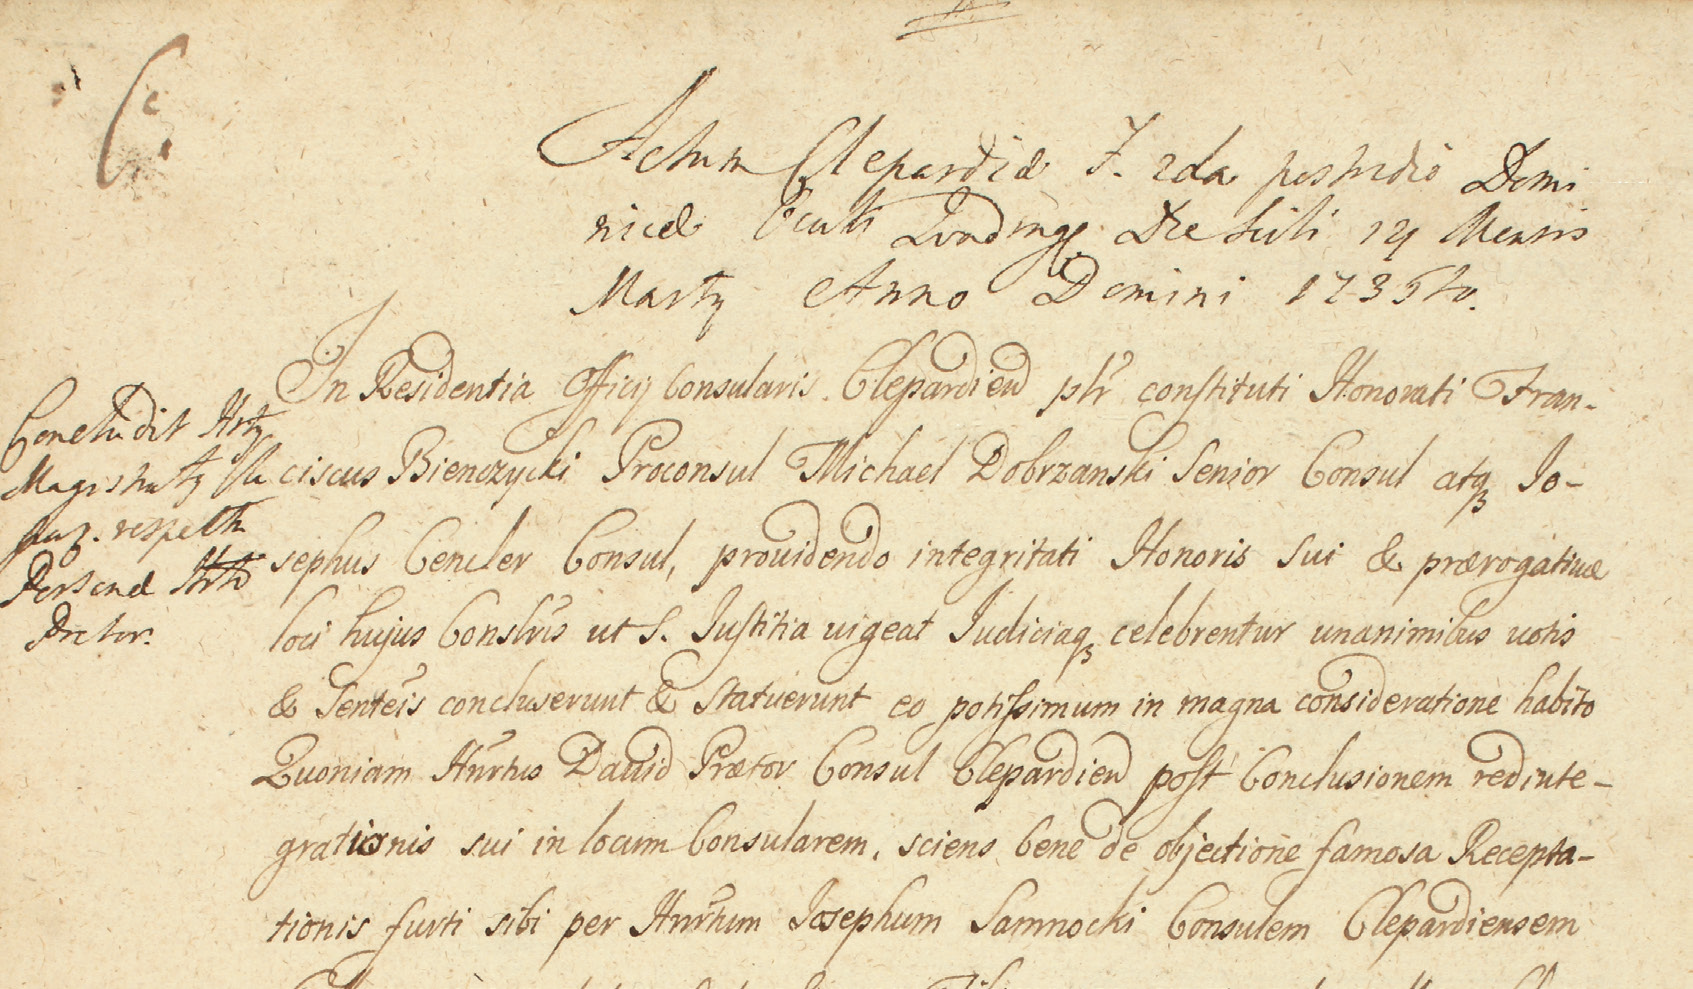 Actum Clepardiæ F. 2da postridie Domi
nicæ Oculi Quadrage Die scili 14 Mensis
Martÿ Anno Domini 1735to.
In Residentia Officij Consularis Clepardien plr constituti Honorati Fran-
ciscus Bienczycki Proconsul Michael Dobrzanski Senior Consul atq3 Jo-
sephus Cencler Consul, prouidendo integritati Honoris Sui & prærogatiuæ
loci hujus Conslris ut S. Justitia uigeat Judiciaq3 celebrentur unanimibus uotis
& Senteis concluserunt & Statuerunt eo potissimum in magna consideratione habito
Quoniam Hnrtus Dauid Prætor Consul Clepardien post Conclusionem redinte-
grationis sui in locum Consularem, sciens bene de objectione famosa Recepta-
tionis furti sibi per Hnrtum Josephum Samnocki Consulem Clepardiensem
Concludit
Magistratÿ
respectu
Personæ
Prætor.